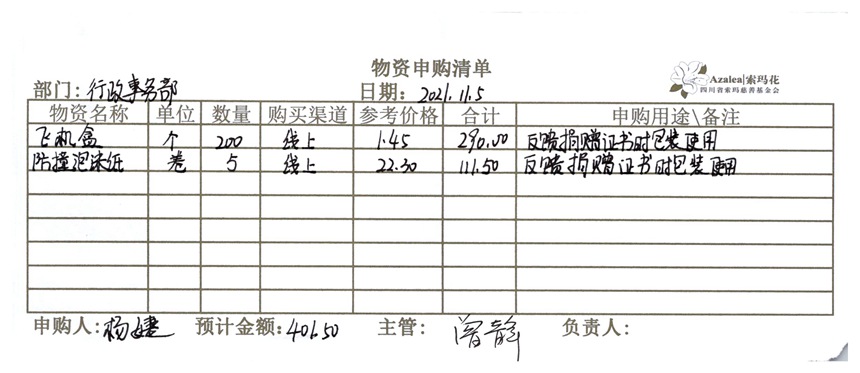 物资申购清单
Azalea|索玛花
四川省索玛慈善基金会
部门：行政事务部 日期：2021.11.5
物资名称 单位 数量 购买渠道 参考价格 合计 申购用途\备注
飞机盒 个 200 线上 1.45 290.00 反馈捐赠证书时包装使用
防撞泡沫纸 卷 5 线上 22.30 111.50 反馈捐赠证书时包装使用
申购人：杨婕 预计金额：401.50 主管：曾静 负责人：